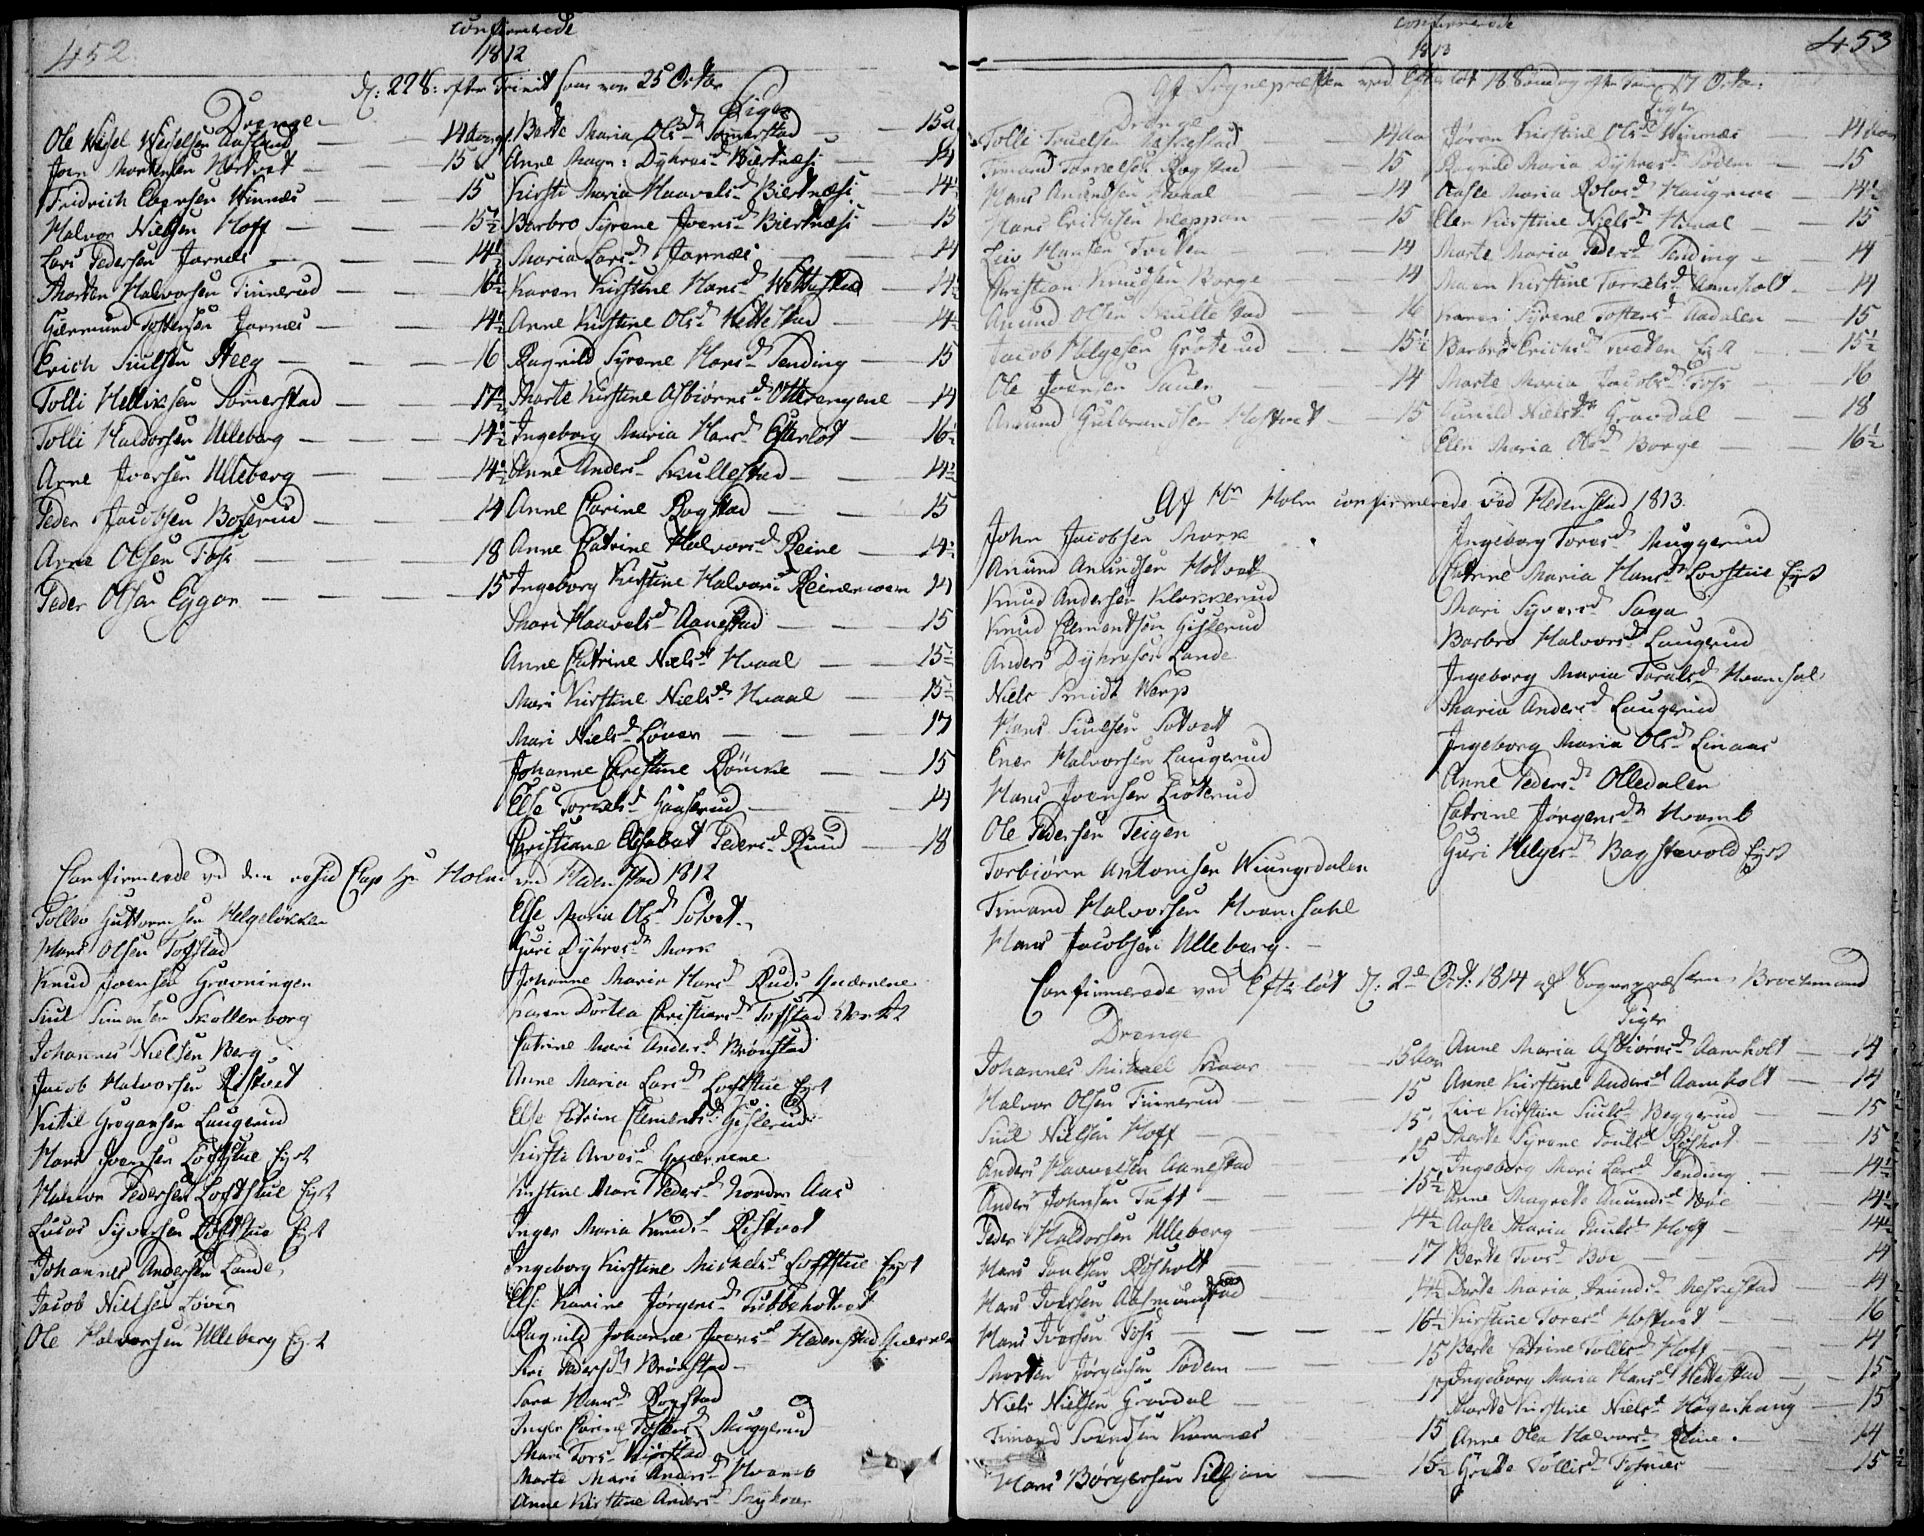 452
confirmerede
1812
D: 22 S: efter Trinit som var 25 Octbr
Drenge
Ole Wesel Weselsen Aasland 14 aar
Joen Mortensen Hostvet 15
Fridrich Winnes 15
Halvor Nielsen Hoff 15½
Lars Pedersen Jarnes 14½
Morten Halvorsen Tinnerud 16½
Giermund Tostensen Jarnes 14½
Erich Siulsen Steeg 16
Tolli Hellicksen Somerstad 17½
Tolli Haldorsen Ulleberg 14½
Arne Iversen Ulleberg 14½
Peder Jacobsen Boserud 14
Arne Olsen Foss 18
Peder Olsen Eggar 15
Piger
Berte Maria Olsd Somerstad 15 a
Anne Magr: Dykresd Biertnæsi 14
Kirsti Maria Haavelsd Biertnæsi 14½
Barbro Syrene Joensd Biertnæsi 15
Maria Larsd Jarnes 14
Karen Kirstine Hansd Hettestad 14½
Anne Kirstine Olsd Hettestad 14½
Ragnild Syrene Hansd Tending 15
Marte Kirstine Asbiørnsd Otterengene 14
Ingeborg Maria Hansd Efterløt 16½
Anne Andersd Skullestad 14½
Anne Carine Rogstad 15
Anne Catrine Halvorsd Reine 14½
Ingeborg Kirstine Halvorsd 14
Mari Haavelsd Aanestad 15
Anne Catrine Nielsd Hvaal 15½
Mari Kirstine Nielsd Hvaal 15½
Mari Nielsd Løver 17
Johanne Christine 15
Else Torrelsd 14
Christiane Elisabet Pedersd Ruud 18
Confirmerede ved den resid Cap Hr Holm ved Hedenstad 1812
Tollev Guttormsen Helgeløkken
Hans Olsen Tofstad
Knud Joensen Grøvningen
Siul Simensen Skollenborg
Johannes Nielsen Berg
Jacob Halvorsen Ristvet
Kittil Gregarsen Laugerud
Hans Svensen Loftstue Eyet
Halvor Pedersen Loftstue Eyet
Lucas Syversen Loftstue Eyet
Johannes Andersen Lande
Jacob Nielsen Løver
Ole Halvorsen Ulleberg Eyet
Else Maria Olsd Sotvet
Guri Dykresd Mork
Johanne Maria Hansd
Karen Dortea Christiansd Tofstad
Catrine Mari Andersd Brønstad
Anne Maria Larsd Loftstue Eyet
Else Catrine Clementsd Gislerud
Kirsti Arvesd
Kirstine Mari Pedersd Nordre Aas
Inger Maria Knudsd Ristvet
Ingeborg Kirstine Michelsd Loftstue Eyet
Else Karine Jørgensd
Ragnild Johanne Joensd Hedenstad
Siri Pedersd Brønstad
Sara Hansd Rogstad
Inger Carine Tostensd Muggerud
Mari Torsd
Marte Mari Andersd Hvamb
Anne Kirstine Andersd
453
confirmerede
1813
Af Sognepræsten ved Efterløt 18 Søndag efter Trin: 17 Octbr:
Drenge
Tolli Truelsen 14 aar
Timand Torrelsen Rogstad 15
Hans Anundsen Hvaal 14
Hans Erichsen Kleppan 15
Hansen 14
Christian Knudsen Berge 14
Anund Olsen Skullestad 16
Jacob Helgesen 15½
Ole Svensen 14
Anund Gulbrandsen Hostvet 15
Piger
Jøran Kirstine Olsd Winnæs 14 aar
Ragnild Maria Dykresd Foden 15
Aasle Maria Rolvsd 14½
Elen Kirstine Nielsd Hvaal 15
Marte Maria Pedersd Tending 14
Maren Kirstine Torrelsd Aamholt 14
Karen Syrene Tostensd Aadalen 15
Barbro Erichsd 15½
Marte Maria Jacobsd Foss 16
Gunild Nielsd Gravdal 18
Elen Maria Olsd Borge 16½
Af Hr Holm confirmerede ved Hedenstad 1813
John Jacobsen Mork
Anund Anundsen Hotvet
Knud Andersen Klokkerud
Knud Clementsen Gislerud
Anders Dykresen Lande
Niels Smidt Werp
Hans Siulsen Sotvet
Ener Halvorsen Laugerud
Hans Joensen
Ole Pedersen Teigen
Torbiørn Antonisen Wiungsdalen
Timand Halvorsen Hvamsahl
Hans Jacobsen Ulleberg
Ingeborg Toresd Muggerud
Catrine Maria Hansd Loftstue Eyet
Mari Syversd Saga
Barbro Halvorsd Laugerud
Ingeborg Maria Toralsd Hvamsal
Maria Andersd Laugerud
Ingeborg Maria Olsd Linaas
Anne Pedersd Olledalen
Catrine Jørgensd Hvamb
Guri Helgesd Bagstevold Eyet
Confirmerede ved Efterløt D: 2de Oct: 1814 af Sognepræsten Brochmand
Drenge
Johannes Michael 15 aar
Halvor Olsen Tinnerud 15
Siul Nielsen Hoff 15
Anders Haavelsen Aanestad 15
Anders Johnsen Tuft 15½
Peder Haldorsen Ulleberg 14½
Hans Paulsen Røsholt 17
Hans Iversen Aasmundstad 14½
Hans Iversen Foss 16½
Morten Jørgensen Foden 15
Niels Nielsen Gravdal
Timand Svendsen 15
Hans Børgersen 15½
Piger
Anne Maria Asbiørnsd Aamholt 14
Anne Kirstine Andersd Aamholt 14
Live Kirstine Siulsd Beggerud 15
Marte Syrene Paulsd Røsholt 15
Ingeborg Mari Larsd Tending 14½
Anne Magrete Anundsd 14½
Aasle Maria Paulsd Hoff 14½
Berte Torsd Boe 14
Berte Maria 14
Kirstine Toresd Hostvet 16
Berte Catrine Tollisd Hoff 14
Ingeborg Maria Hansd Hettestad 15
Marte Kirstine Nielsd Høgashaug 15
Anne Olea Halvorsd Reine 14
Grete Tollisd Fosnes 15½